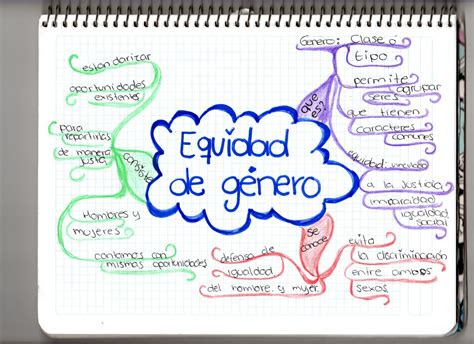 Equidad
de género
que
es?
Género: Clase ó
tipo
permite
agrupar
seres
que tienen
caracteres
comunes
equidad:
a la justicia
igualdad
social
se
conoce
evita
la discriminación
entre ambos
sexos
defensa de
igualdad
del hombre y mujer
consiste
estandarizar
oportunidades
existentes
para
repartirlas
de manera
justa
Hombres y
mujeres
contamos con
mismas oportunidades